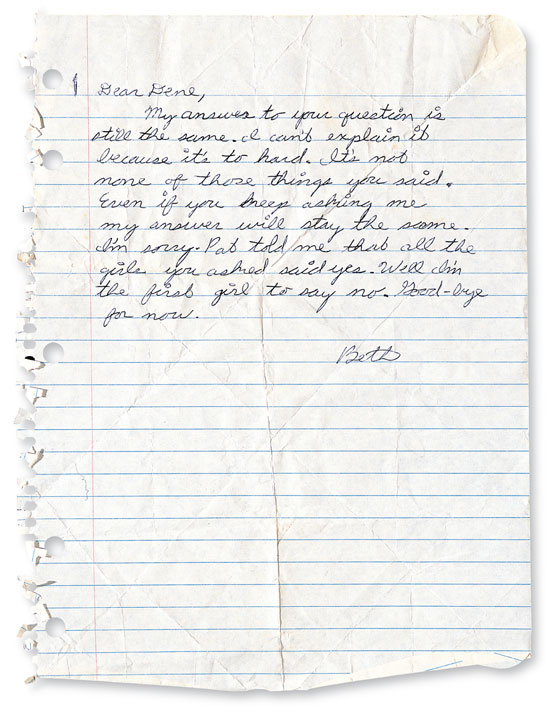 Dear Gene,
My answer to your question is
still the same. I can't explain it
because it's to hard. It's not
none of those things you said.
Even if you keep asking me
my answer will stay the same.
I'm sorry. Pat told me that all the
girls you asked said yes. Well I'm
the first girl to say no. Good-bye
for now.
Beth